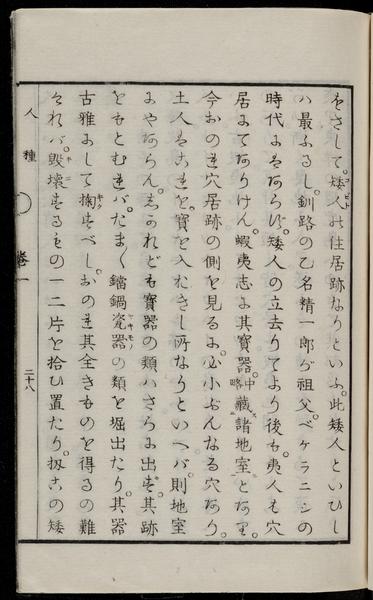 をさして。矮人の住居跡なりといふ。此矮人といひし
ハ最ふるし。釧路の乙名精一郎が祖父。ベケラニシの
時代にはあらず。矮人の立去りてより後も。夷人も穴
居にてありけん。蝦夷志に其寶器。中略藏諸地室。とあり。
今おのれ穴居跡の側を見るに。必小ぶんなる穴あり。
土人はこれを。寶を入おきし所なりといへバ。則地室
にやあらん。志かれども寶器の類ハさらに出ず。其跡
をもとむれバ。たまく鐺鍋瓷器の類を堀出たり。其器
古雅にして掬すべし。おのれ其全きものを得るの難
ければ。毀壞するもの一二片を拾ひ置たり。扨この矮
人種
卷一
二十八